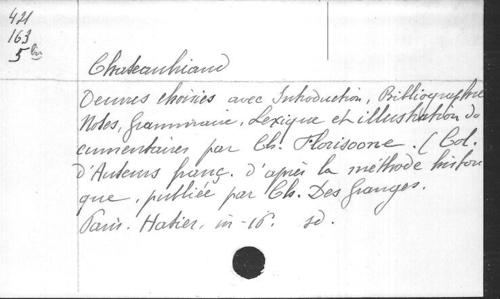 421
163
5 b/u
Chateaubriand
Oeuvres choisies avec Introduction, Bibliographie
Notes, Grammaire, Lexique et illustration do
cumentaires par Ch. Florisoone. (Col.
d'Auteurs franç. d'après la méthode histori
que, publiée par Ch. Des Granges.
Paris. Hatier. in-16. sd.